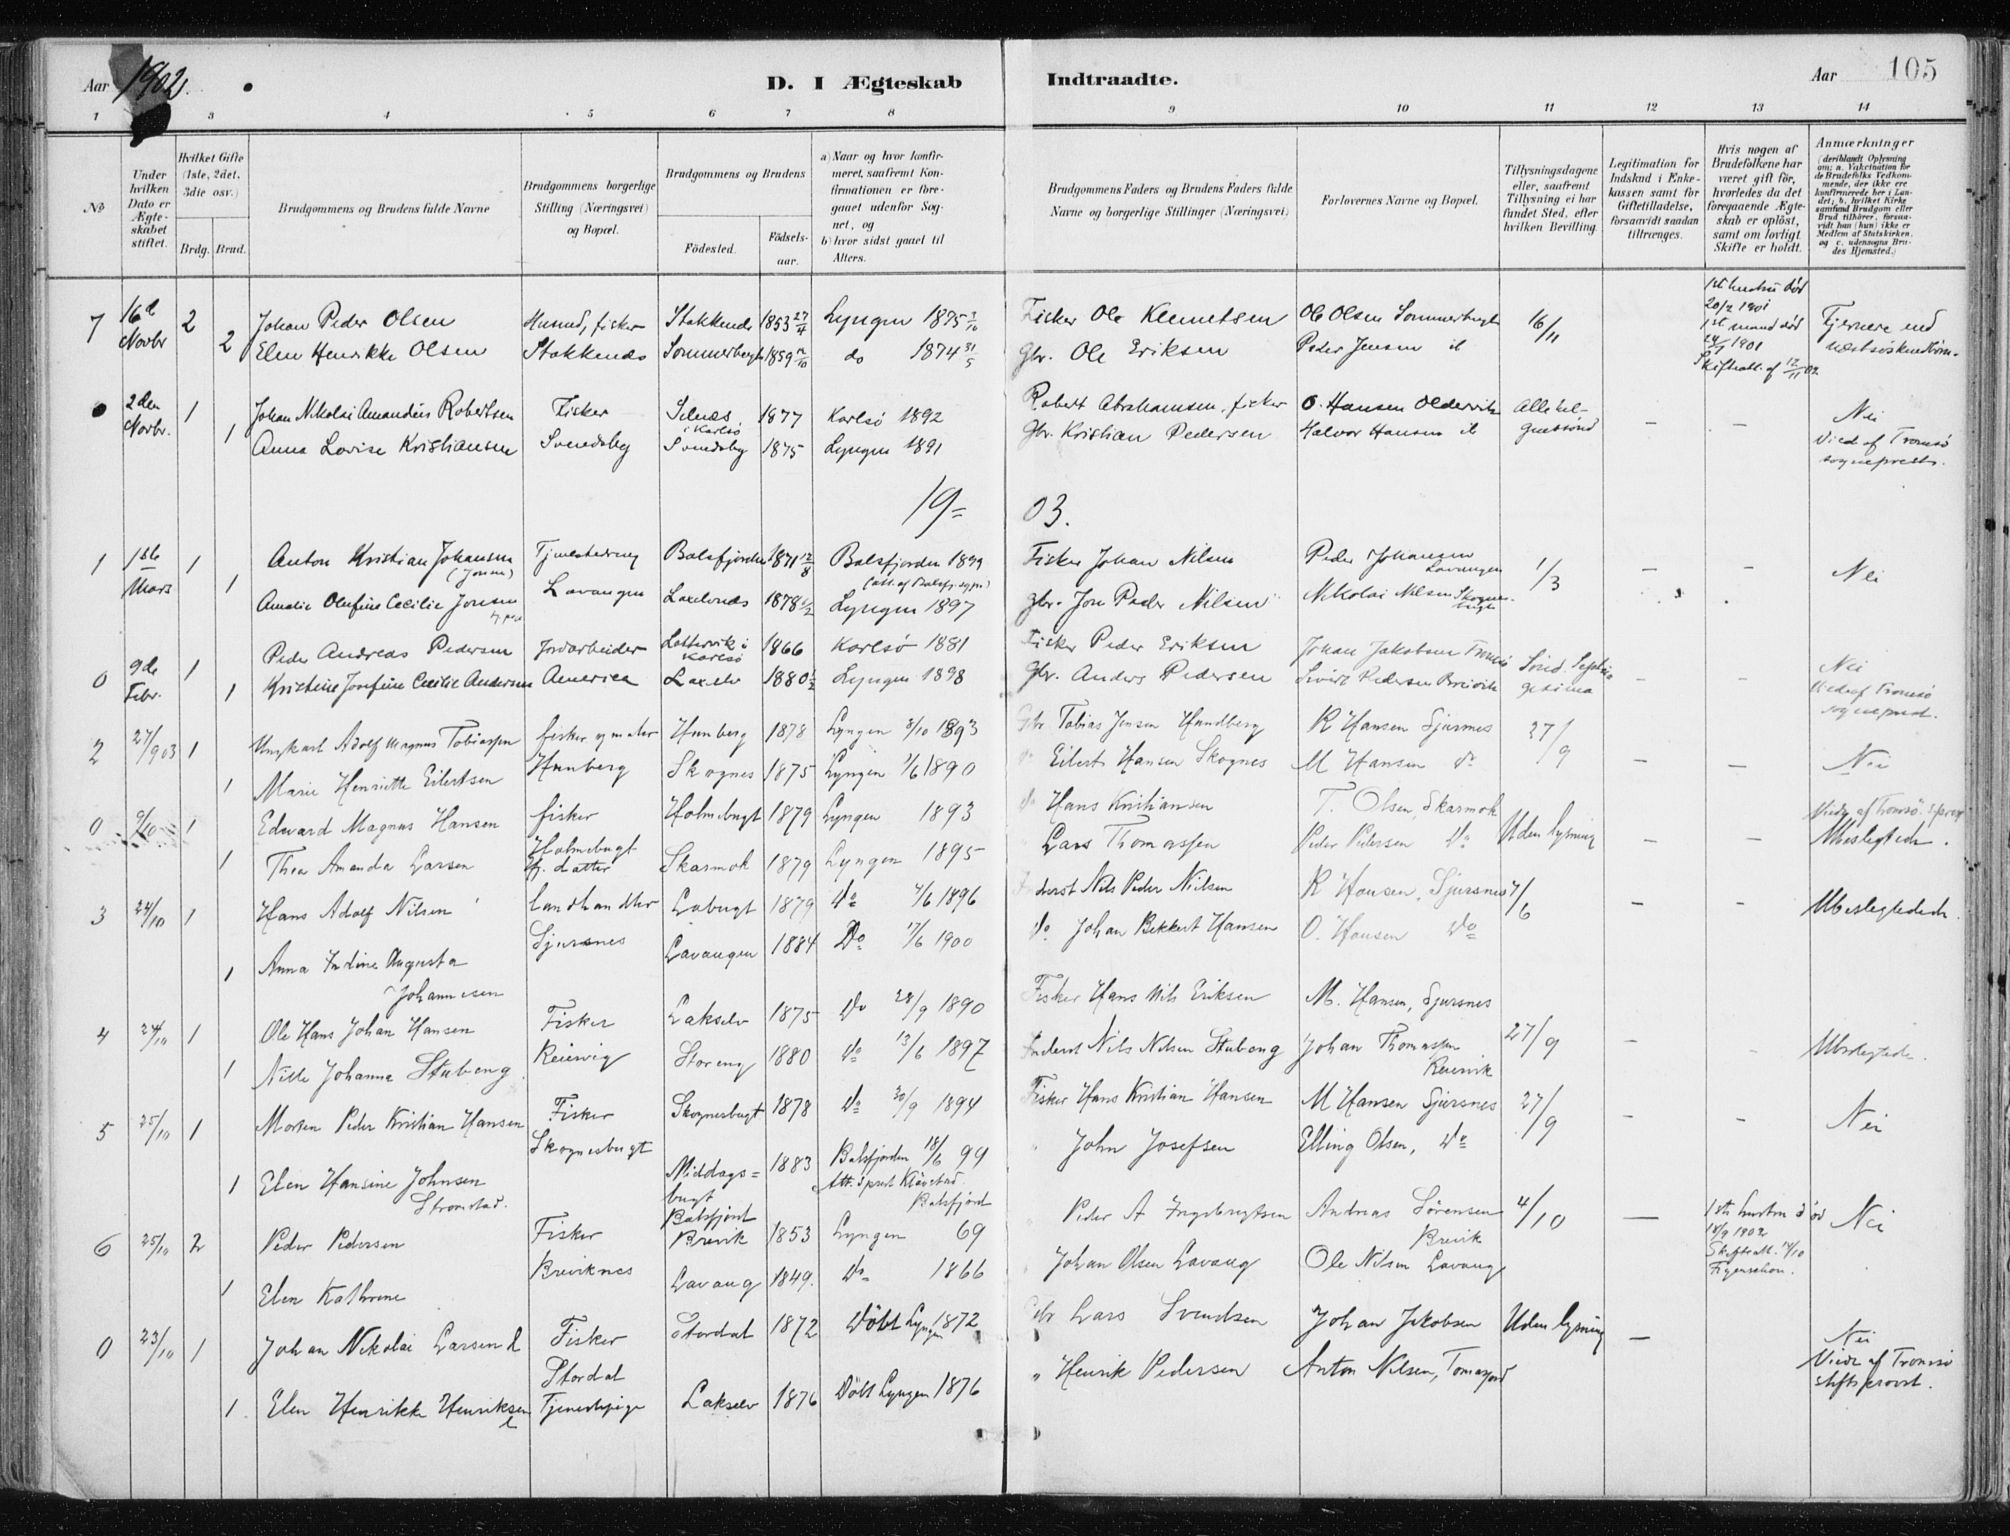 Aar 1902. D. I Ægteskab Indtraadte. Aar 105
1 3 4 5 6 7 8 9 10 11 12 13 14
№
Under hvilken Dato er Ægteskabet stiftet.
Hvilket Gifte (1ste, 2det, 3die osv.)
Brdg. Brud.
Brudgommens og Brudens fulde Navne
Brudgommens borgerlige Stilling (Næringsvei) og Bopæl.
Brudgommens og Brudens
Fødested. Fødselsaar.
a) Naar og hvor konfirmeret, saafremt Konfirmationen er foregaaet udenfor Sognet, og
b) hvor sidst gaaet til Alters.
Brudgommens Faders og Brudens Faders fulde Navne og borgerlige Stillinger (Næringsvei)
Forlovernes Navne og Bopæl.
Tillysningsdagene eller, saafremt Tillysning ei har fundet Sted, efter hvilken Bevilling.
Legitimation for Indskud i Enkekassen samt for Giftetilladelse, forsaavidt saadan tiltrænges.
Hvis nogen af Brudefolkene har været gift før, hvorledes da det foregaaende Ægteskab er opløst, samt om lovligt Skifte er holdt.
Anmærkninger (deriblandt Oplysning om: a. Vakcination for de Brudefolks Vedkommende, der ikke ere konfirmerede her i Landet; b. hvilket Kirkesamfund Brudgom eller Brud tilhører, forsaavidt han (hun) ikke er Medlem af Statskirken, og c. udensogns Brudes Hjemsted.)
7 16de Novbr 2 Johan Peder Olsen Husmd, fisker Stakkenes 1853 27/4 Lyngen 1875 3/10 Fisker Ole Klemetsen Ole Olsen Sommerbugt 16/11 1ste hustru død 20/2 1901 Fjernere end
2 Elen Henrikke Olsen Stakkenes Sommerbugt 1859 do 1874 31/5 Gbr. Ole Eriksen Peder Jensen 1ste mand død 1901 Skifteatt. af 12/11 02 næstsøskendbørn.
2den Novbr. 1 Johan Nikolai Amandius Robertsen Fisker Selnes i Karlsø 1877 Karlsø 1892 Robert Abrahamsen, fisker O. Hansen Oldervik Allehelgenssønd – – Nei
1 Anna Lovise Kristiansen Svendsby Svendsby 1875 Lyngen 1891 Gbr. Kristian Pedersen Halvor Hansen Viet af Tromsø sognepræst.
19= 03.
1 1ste Mars 1 Anton Kristian Johansen Tjenestedreng Balsfjorden 1871 12/8 Balsfjorden 1899 Fisker Johan Nilsen Peder Johansen Lavangen 1/3 – – Nei
1 Amalie Olufine Cecilie Jensen Lavangen Laxelvnes 1878 Lyngen 1897 gbr. Jon Peder Nilsen Nikolai Nilsen Skognesbugt
0 9de Febr. 1 Peder Andreas Pedersen Jordarbeider Lattervik i Karlsø 1866 Karlsø 1881 Fisker Peder Eriksen Johan Jakobsen Tromsø Sønd. Septuagesima – – Nei
1 Kristine Josefine Cecilie Andersen America Laxelv 1880 Lyngen 1898 Gbr. Anders Pedersen Sivert Pedersen Breivik Viet af Tromsø sognepræst.
2 27/9 03 1 Ungkarl Adolf Magnus Tobiassen fisker og maler Hunberg 1878 Lyngen 8/10 1893 Gbr Tobias Jensen Hundberg R Hansen Sjursnes 27/9 – – Nei
1 Marie Henriette Eilertsen Hunberg Skognes 1875 Lyngen 1/6 1890 Eilert Hansen Skognes M Hansen do
0 9/10 1 Edvard Magnus Hansen fisker Holmebugt 1879 Lyngen 1893 do Hans Kristiansen T. Olsen, Skarmok Uden lysning – – Viede af Tromsø
1 Thea Amanda Larsen Holmebugt datter Skarmok 1879 Lyngen 1895 Lars Thomassen Peder Pedersen do Ubeslegtede.
3 24/10 1 Hans Adolf Nilsen landhandler Labugt 1879 Do 4/6 1896 Inderst Nils Peder Nilsen R Hansen, Sjursnes 7/6 – – Ubeslegtede.
1 Anna Indine Augusta Johannesen Sjursnes Lavangen 1884 Do 17/6 1900 do Johan Bekkert Hansen O. Hansen do
4 24/10 1 Ole Hans Johan Hansen Fisker Lakselv 1875 Do 28/9 1890 Fisker Hans Nils Eriksen M. Hansen, Sjursnes 27/9 – – Ubeslegtede.
1 Nille Johanna Stubeng Reiervig Storeng 1880 Do 13/6 1897 Inderst Nils Nilsen Stubeng Johan Thomassen Reiervik
5 25/10 1 Morten Peder Kristian Hansen Fisker Skognesbugt 1878 Do 30/9 1894 Fisker Hans Kristian Hansen M Hansen Sjursnes 27/9 – – Nei
1 Elen Hansine Johnsen Stromstad. Skognesbugt Middagsbugt Balsfjord 1883 Balsfjorden 18/6 99 " John Josefsen Elling Olsen, do
6 25/10 2 Peder Pedersen Fisker Brevik 1853 Lyngen 69 " Peder A Ingebrigtsen Andreas Sørensen Brevik 4/10 – 1ste hustru død 18/9 1902 Skifteatt. Nei
1 Elen Kathrine Breviknes Lavang 1849. Do 1866 Johan Olsen Lavang Ole Nilsen Lavang
0 23/10 1 Johan Nikolai Larsen Fisker Stordal 1872 Døbt Lyngen 1872 Gbr Lars Svendsen Johan Jakobsen Uden lysning – Nei
1. Elen Henrikke Henriksen Stordal Tjenestepige Lakselv 1876 Døbt Lyngen 1876 " Henrik Pedersen Anton Nilsen, Tomasjord Viede af Tromsø stiftsprovst.